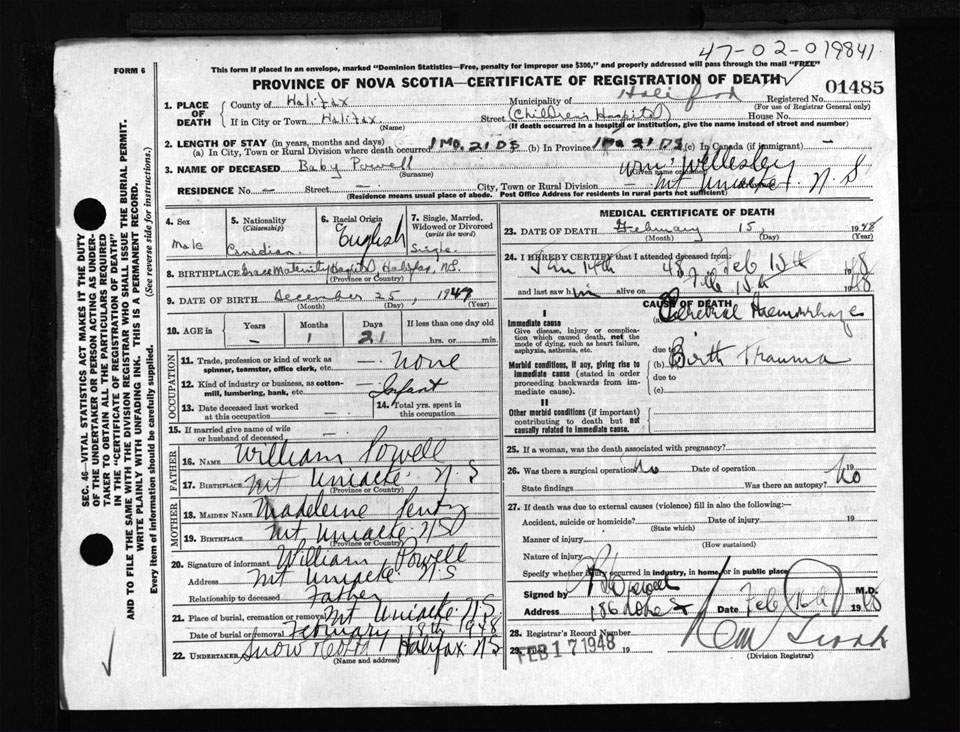 47-02-019841
FORM 6
This form if placed in an envelope, marked "Dominion Statistics—Free, penalty for improper use $300," and properly addressed will pass through the mail "FREE"
PROVINCE OF NOVA SCOTIA—CERTIFICATE OF REGISTRATION OF DEATH
01485
1. PLACE OF DEATH
County of Halifax
Municipality of Halifax
Registered No.
(For use of Registrar General only)
If in City or Town Halifax (Name)
Street (Children's Hospital) House No.
(If death occurred in a hospital or institution, give the name instead of street and number)
2. LENGTH OF STAY (in years, months and days)
(a) In City, Town or Rural Division where death occurred 1 Mo. 21 DS (b) In Province 1 Mo 21 DS (c) In Canada (if immigrant) —
3. NAME OF DECEASED Baby Powell Wm. Wellesley
(Surname)
RESIDENCE No — Street — City, Town or Rural Division Mt Uniacke N.S
(Residence means usual place of abode. Post Office Address for residents in rural parts not sufficient)
4. Sex Male
5. Nationality (Citizenship) Canadian
6. Racial Origin English
7. Single, Married, Widowed or Divorced (write the word) Single
8. BIRTHPLACE Grace Maternity Hospital, Halifax, N.S.
(Province or Country)
9. DATE OF BIRTH December 25, 1947
(Month) (Day) (Year)
10. AGE in Years — Months 1 Days 21 If less than one day old hrs. or min.
OCCUPATION
11. Trade, profession or kind of work as spinner, teamster, office clerk, etc. — None
12. Kind of industry or business, as cotton-mill, lumbering, bank, etc. — Infant
13. Date deceased last worked at this occupation —
14. Total yrs. spent in this occupation
15. If married give name of wife or husband of deceased —
FATHER
16. NAME William Powell
17. BIRTHPLACE Mt Uniacke N.S
(Province or Country)
MOTHER
18. MAIDEN NAME Madeleine
19. BIRTHPLACE Mt Uniacke NS
(Province or Country)
20. Signature of informant William Powell
Address Mt Uniacke N.S
Relationship to deceased Father
21. Place of burial, cremation or removal Mt Uniacke N.S
Date of burial or removal February 18th 1948
22. UNDERTAKER Snow & Co Ltd Halifax NS
(Name and address)
MEDICAL CERTIFICATE OF DEATH
23. DATE OF DEATH February 15, 1948
(Month) (Day) (Year)
24. I HEREBY CERTIFY that I attended deceased from:
Jan 14th 48 Feb 15th 1948
and last saw him alive on Feb 15th 1948
CAUSE OF DEATH
I
Immediate cause
Give disease, injury or complication which caused death, not the mode of dying, such as heart failure, asphyxia, asthenia, etc.
(a) Cerebral Haemorrhage
due to
Morbid conditions, if any, giving rise to immediate cause (stated in order proceeding backwards from immediate cause).
(b) Birth Trauma
due to
(c)
II
Other morbid conditions (if important) contributing to death but not causally related to immediate cause.
25. If a woman, was the death associated with pregnancy?
26. Was there a surgical operation No Date of operation 19
State findings Was there an autopsy? No
27. If death was due to external causes (violence) fill in also the following:
Accident, suicide or homicide? Date of injury 19
(State which)
Manner of injury
(How sustained)
Nature of injury
Specify whether injury occurred in industry, in home, or in public place
Signed by M.D.
Address 186 Date Feb 16th 1948
28. Registrar's Record Number
29. Filed FEB 17 1948 19
(Division Registrar)
SEC. 46—VITAL STATISTICS ACT MAKE IT THE DUTY
OF THE UNDERTAKER OR PERSON ACTING AS UNDER-
TAKER TO OBTAIN ALL THE PARTICULARS REQUIRED
IN THE "CERTIFICATE OF REGISTRATION OF DEATH"
AND TO FILE THE SAME WITH THE DIVISION REGISTRAR WHO SHALL ISSUE THE BURIAL PERMIT.
WRITE PLAINLY WITH UNFADING INK. THIS IS A PERMANENT RECORD.
Every item of information should be carefully supplied. (See reverse side for instructions.)